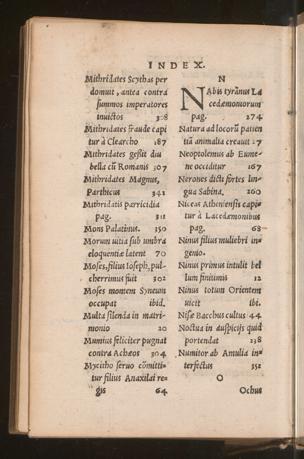 INDEX.
Mithridates Scythas per
domuit, antea contra
summos imperatores
inuictos 308
Mithridates fraude capi
tur à Clearcho 187
Mithridates gessit diu
bella cũ Romanis 307
Mithridates Magnus,
Parthicus 342
Mithridatis parricidia
pag. 311
Mons Palatinus. 350
Morum uitia sub umbra
eloquentiæ latent 70
Moses, filius Ioseph, pul-
cherrimus fuit 302
Moses montem Syneum
occupat ibid.
Multa silenda in matri-
monio 20
Mumius feliciter pugnat
contra Achæos 304
Mycitho seruo cõmitti-
tur filius Anaxilai re-
gis 64
N
NAbis tyrãnus La
cedæmoniorum
pag. 274
Natura ad locorũ patien
tiã animalia creauit 17
Neoptolemus ab Eume-
ne occiditur 167
Nerones dicti fortes lin-
gua Sabina. 260
Niceas Atheniensis capi-
tur à Lacedæmonibus
pag. 68
Ninus filius muliebri in-
genio.
Ninus primus intulit bel
lum finitimis 12
Ninus totum Orientem
uicit ibi.
Nisæ Bacchus cultus 44
Noctua in auspicijs quid
portendat 238
Numitor ab Amulia in-
terfectus 352
O
Ochus